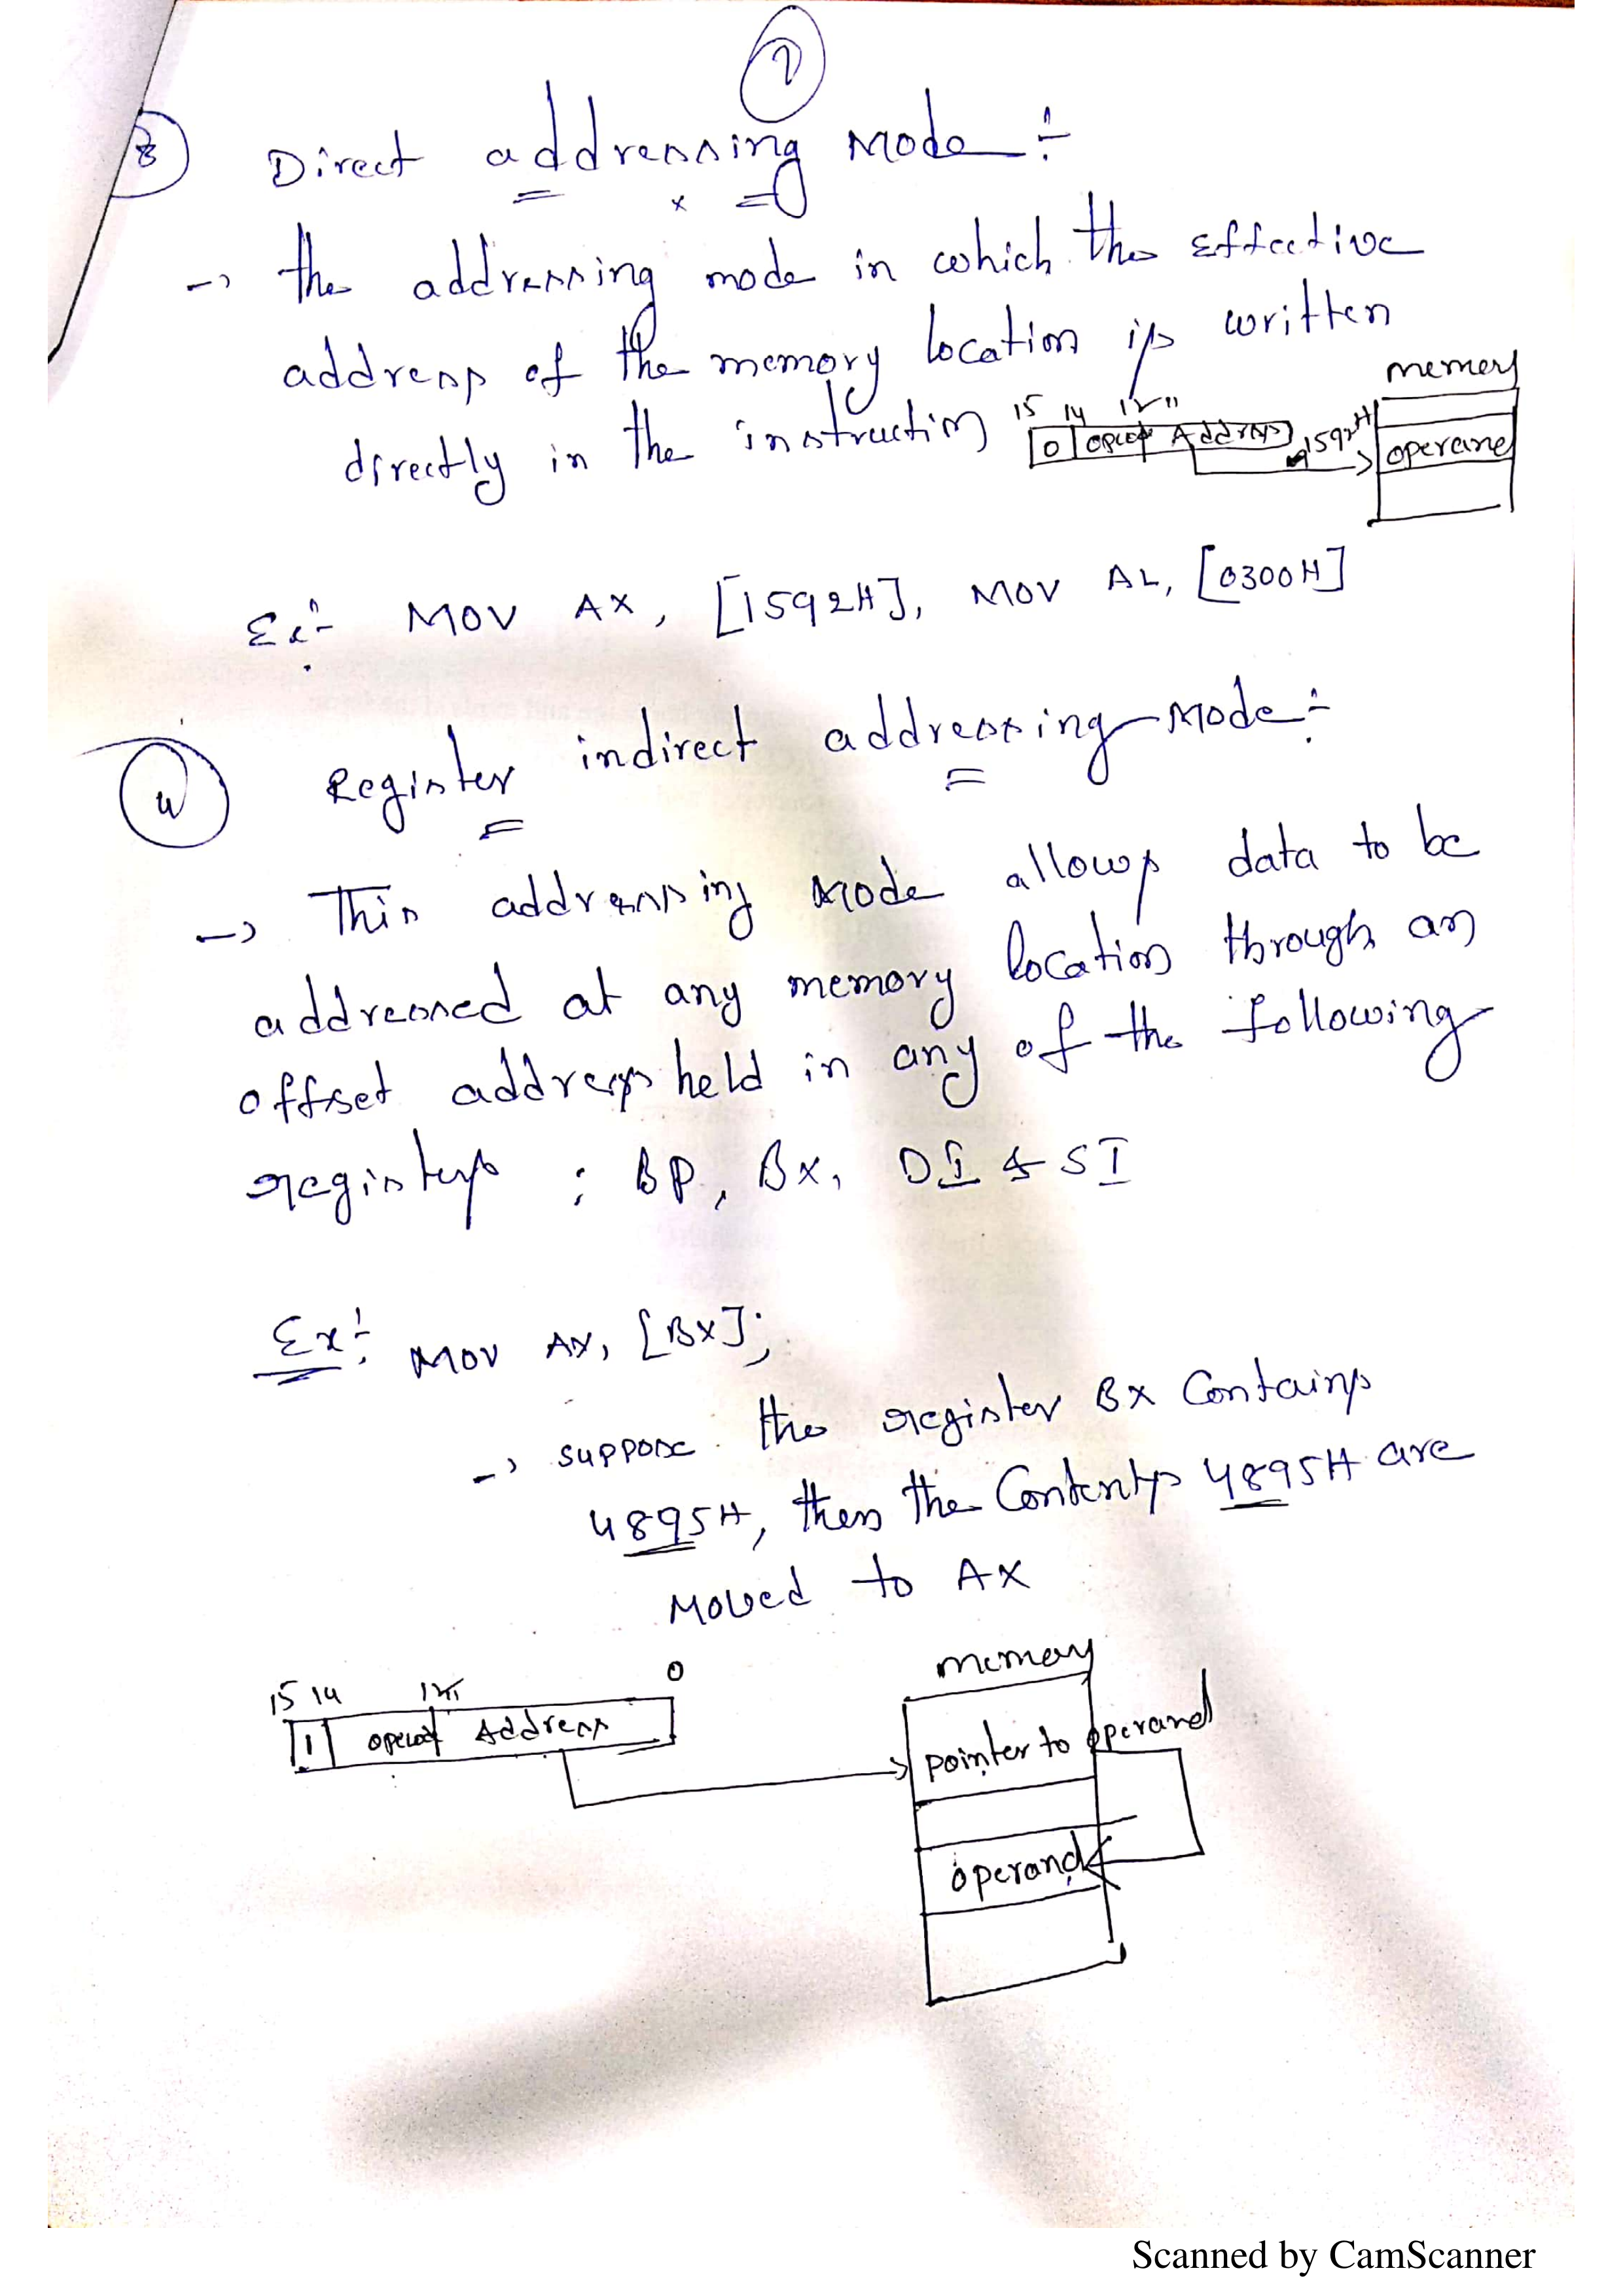 7
3 Direct addressing Mode :-
→ the addressing mode in which the effective
address of the memory location is written
directly in the instruction
15 14 12 11
0 opcode Address
1592H
memory
operand
Ex:- MOV AX, [1592H], MOV AL, [0300H]
4 Register indirect addressing Mode :-
→ This addressing Mode allows data to be
addressed at any memory location through an
offset address held in any of the following
registers : BP, BX, DI & SI
Ex:- MOV AX, [BX];
→ suppose the register BX Contains
4895H, then the Contents 4895H are
Moved to AX
15 14 12 11 0
1 opcode Address
memory
pointer to operand
operand
Scanned by CamScanner